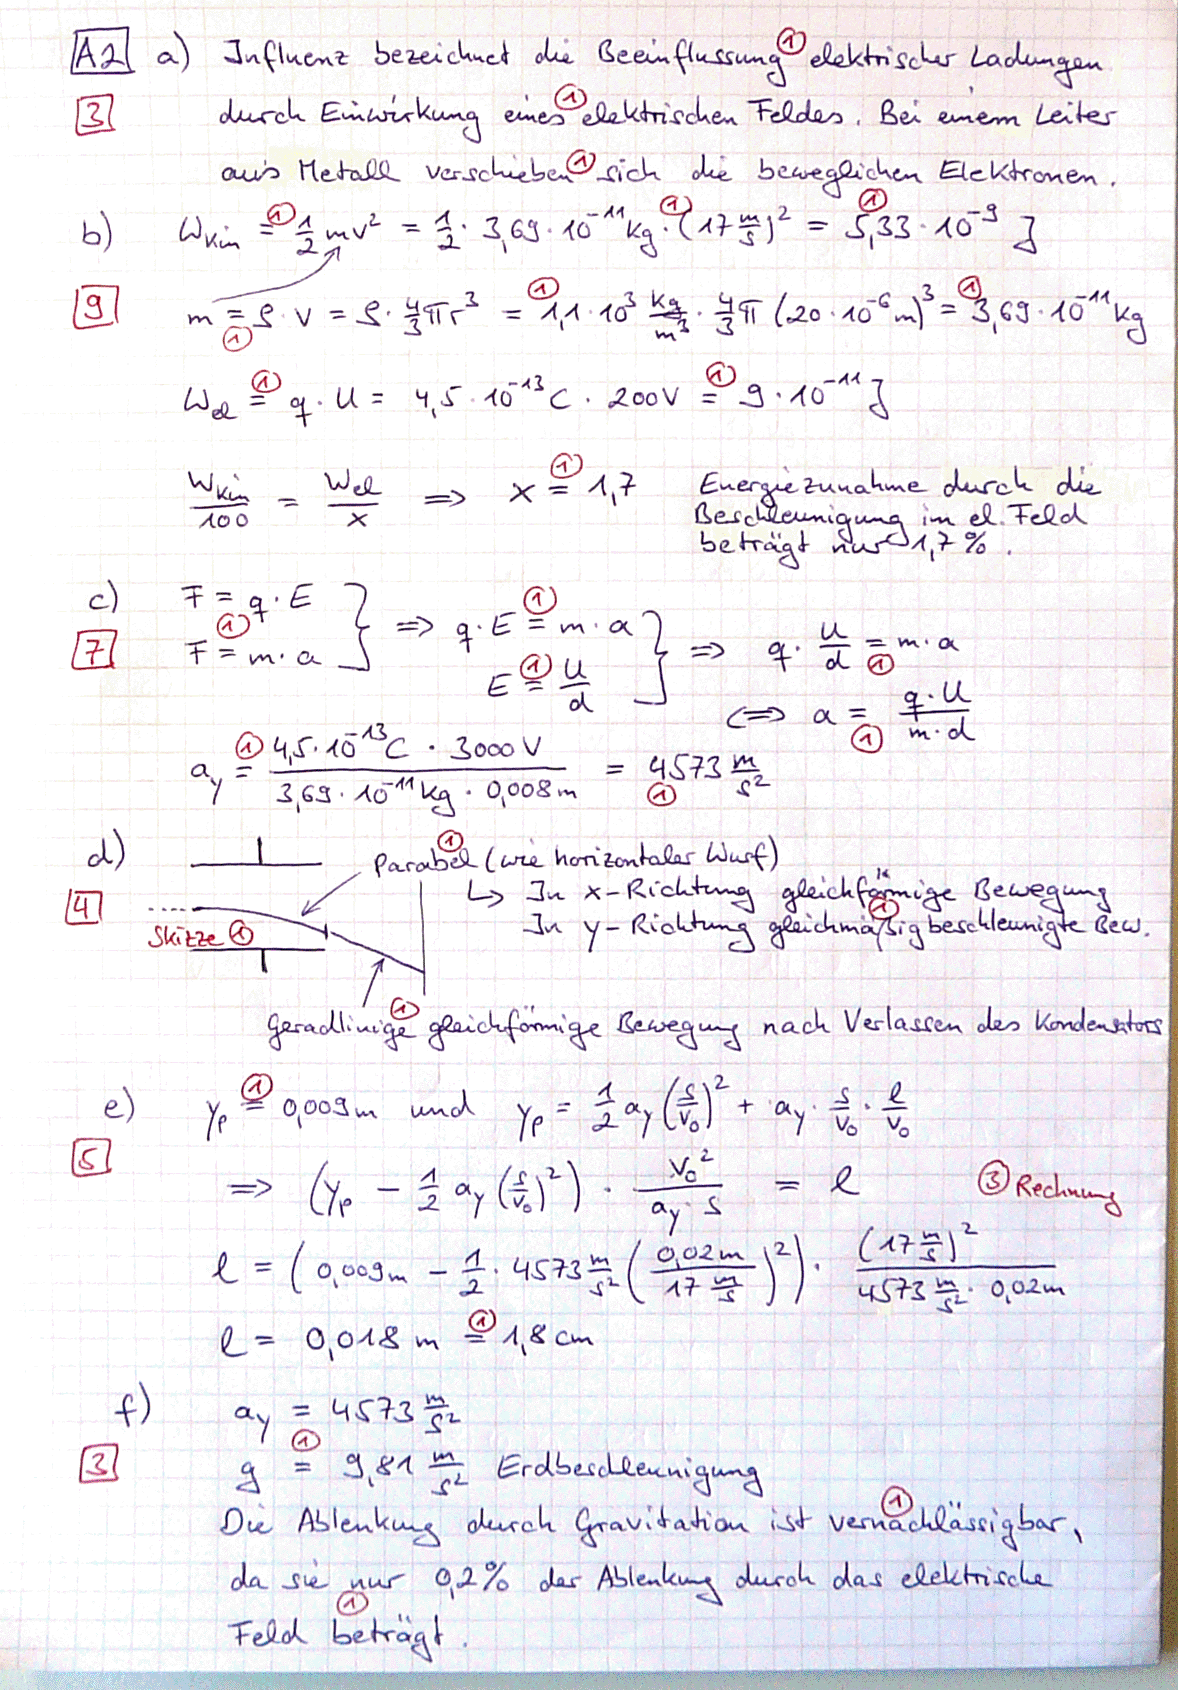 A2 a) Influenz bezeichnet die Beeinflussung ① elektrischer Ladungen
3 durch Einwirkung eines ① elektrischen Feldes. Bei einem Leiter
aus Metall verschieben ① sich die beweglichen Elektronen.
b) W_kin =① 1/2 mv² = 1/2 · 3,69 · 10⁻¹¹ kg ·① (17 m/s)² =① 5,33 · 10⁻⁹ J
9 m =① ρ · V = ρ · 4/3 πr³ =① 1,1 · 10³ kg/m³ · 4/3 π (20 · 10⁻⁶ m)³ =① 3,69 · 10⁻¹¹ kg
W_el =① q · U = 4,5 · 10⁻¹³ C · 200V =① 9 · 10⁻¹¹ J
W_kin/100 = W_el/x ⟹ x =① 1,7 Energiezunahme durch die
Beschleunigung im el. Feld
beträgt nur 1,7 %.
c) F = q · E
7 F =① m · a } ⟹ q · E =① m · a
E =① U/d } ⟹ q · U/d =① m · a
⟺ a =① q · U / m · d
a_y =① 4,5 · 10⁻¹³ C · 3000 V / 3,69 · 10⁻¹¹ kg · 0,008 m =① 4573 m/s²
d) Parabel ① (wie horizontaler Wurf)
4 ↳ In x-Richtung gleichförmige Bewegung
Skizze ① In y-Richtung gleichmäßig ① beschleunigte Bew.
Geradlinige ① gleichförmige Bewegung nach Verlassen des Kondensators
e) y_p =① 0,009m und y_p = 1/2 a_y (s/v₀)² + a_y · s/v₀ · l/v₀
5 ⟹ (y_p − 1/2 a_y (s/v₀)²) · v₀²/a_y · s = l ③ Rechnung
l = (0,009m − 1/2 · 4573 m/s² (0,02m / 17 m/s)²) · (17 m/s)² / 4573 m/s² · 0,02m
l = 0,018 m =① 1,8 cm
f) a_y = 4573 m/s²
3 g =① 9,81 m/s² Erdbeschleunigung
Die Ablenkung durch Gravitation ist vernachlässigbar ①,
da sie nur 0,2% der Ablenkung durch das elektrische
Feld beträgt ①.